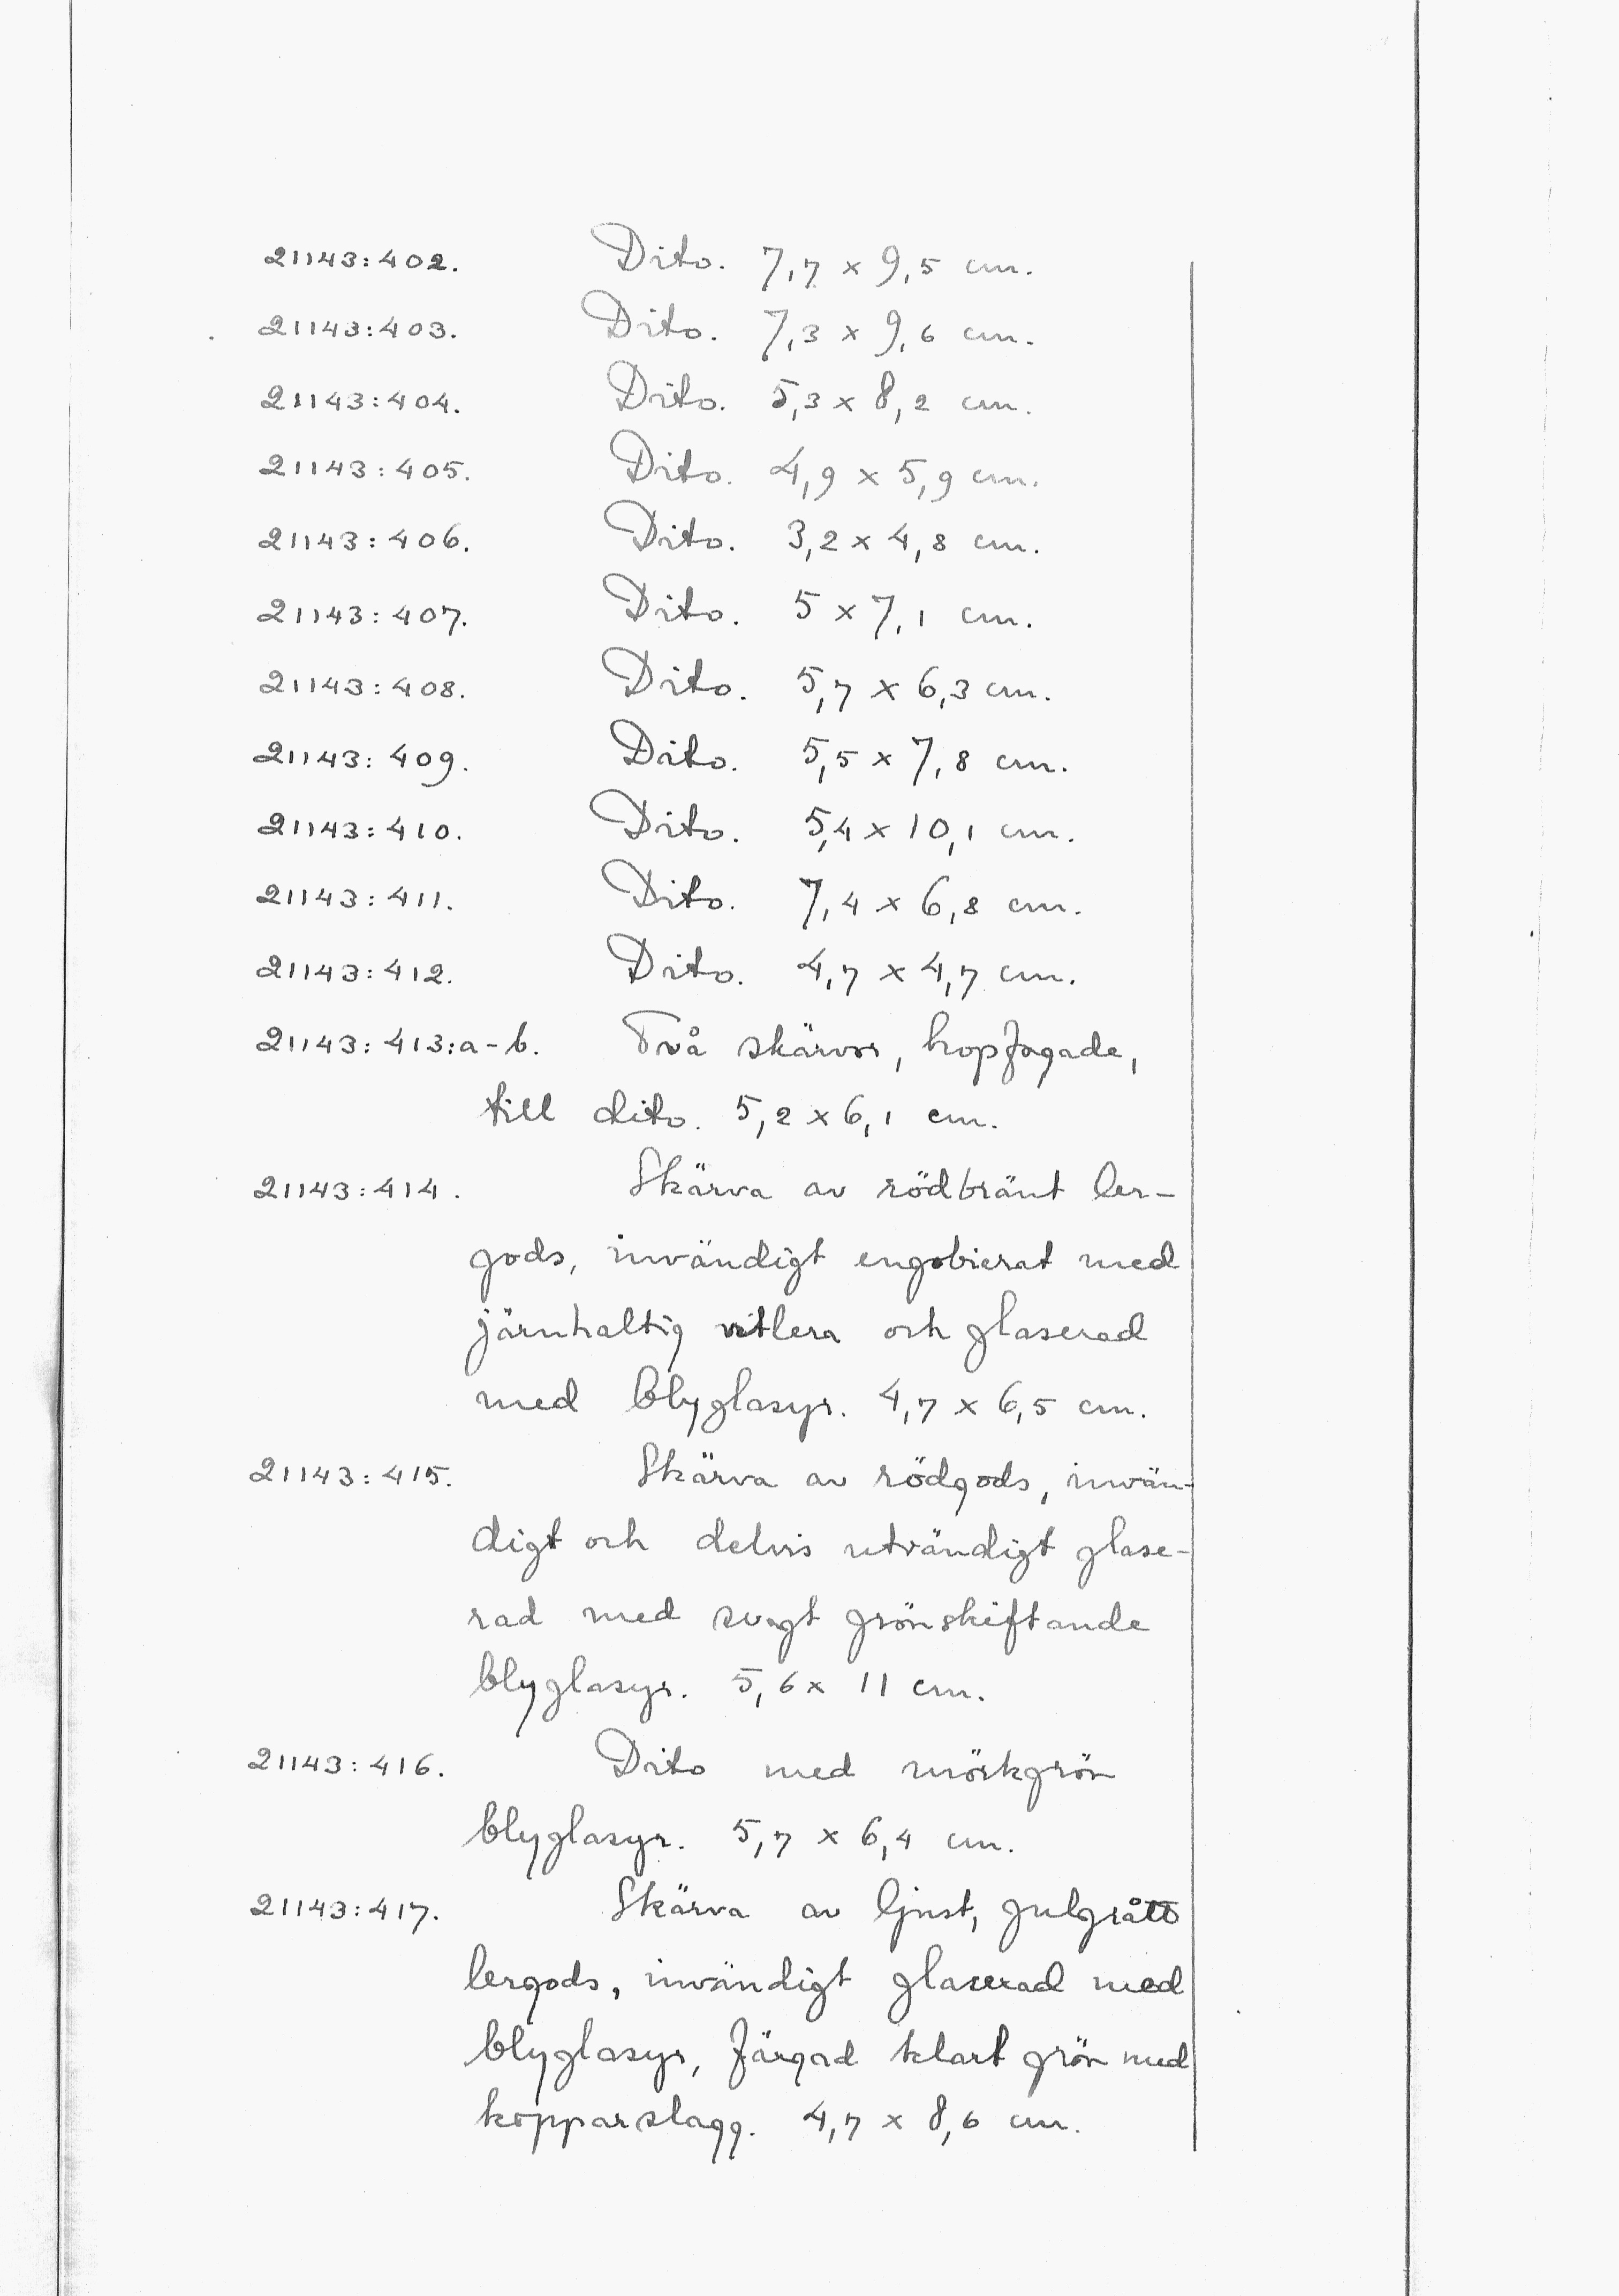 21143:402. Dito. 7,7 x 9,5 cm.
21143:403. Dito. 7,3 x 9,6 cm.
21143:404. Dito. 5,3 x 8,2 cm.
21143:405. Dito. 4,9 x 5,9 cm.
21143:406. Dito. 3,2 x 4,8 cm.
21143:407. Dito. 5 x 7,1 cm.
21143:408. Dito. 5,7 x 6,3 cm.
21143:409. Dito. 5,5 x 7,8 cm.
21143:410. Dito. 5,4 x 10,1 cm.
21143:411. Dito. 7,4 x 6,8 cm.
21143:412. Dito. 4,7 x 4,7 cm.
21143:413:a-b. Två skärvor, hopfogade,
till dito. 5,2 x 6,1 cm.
21143:414. Skärva av rödbränt ler-
gods, invändigt engobierat med
järnhaltig vitlera och glaserad
med blyglasyr. 4,7 x 6,5 cm.
21143:415. Skärva av rödgods, invän-
digt och delvis utvändigt glase-
rad med svagt grönskiftande
blyglasyr. 5,6 x 11 cm.
21143:416. Dito med mörkgrön
blyglasyr. 5,7 x 6,4 cm.
21143:417. Skärva av ljust, gulgrått
lergods, invändigt glaserad med
blyglasyr, färgad klart grön med
kopparslagg. 4,7 x 8,6 cm.